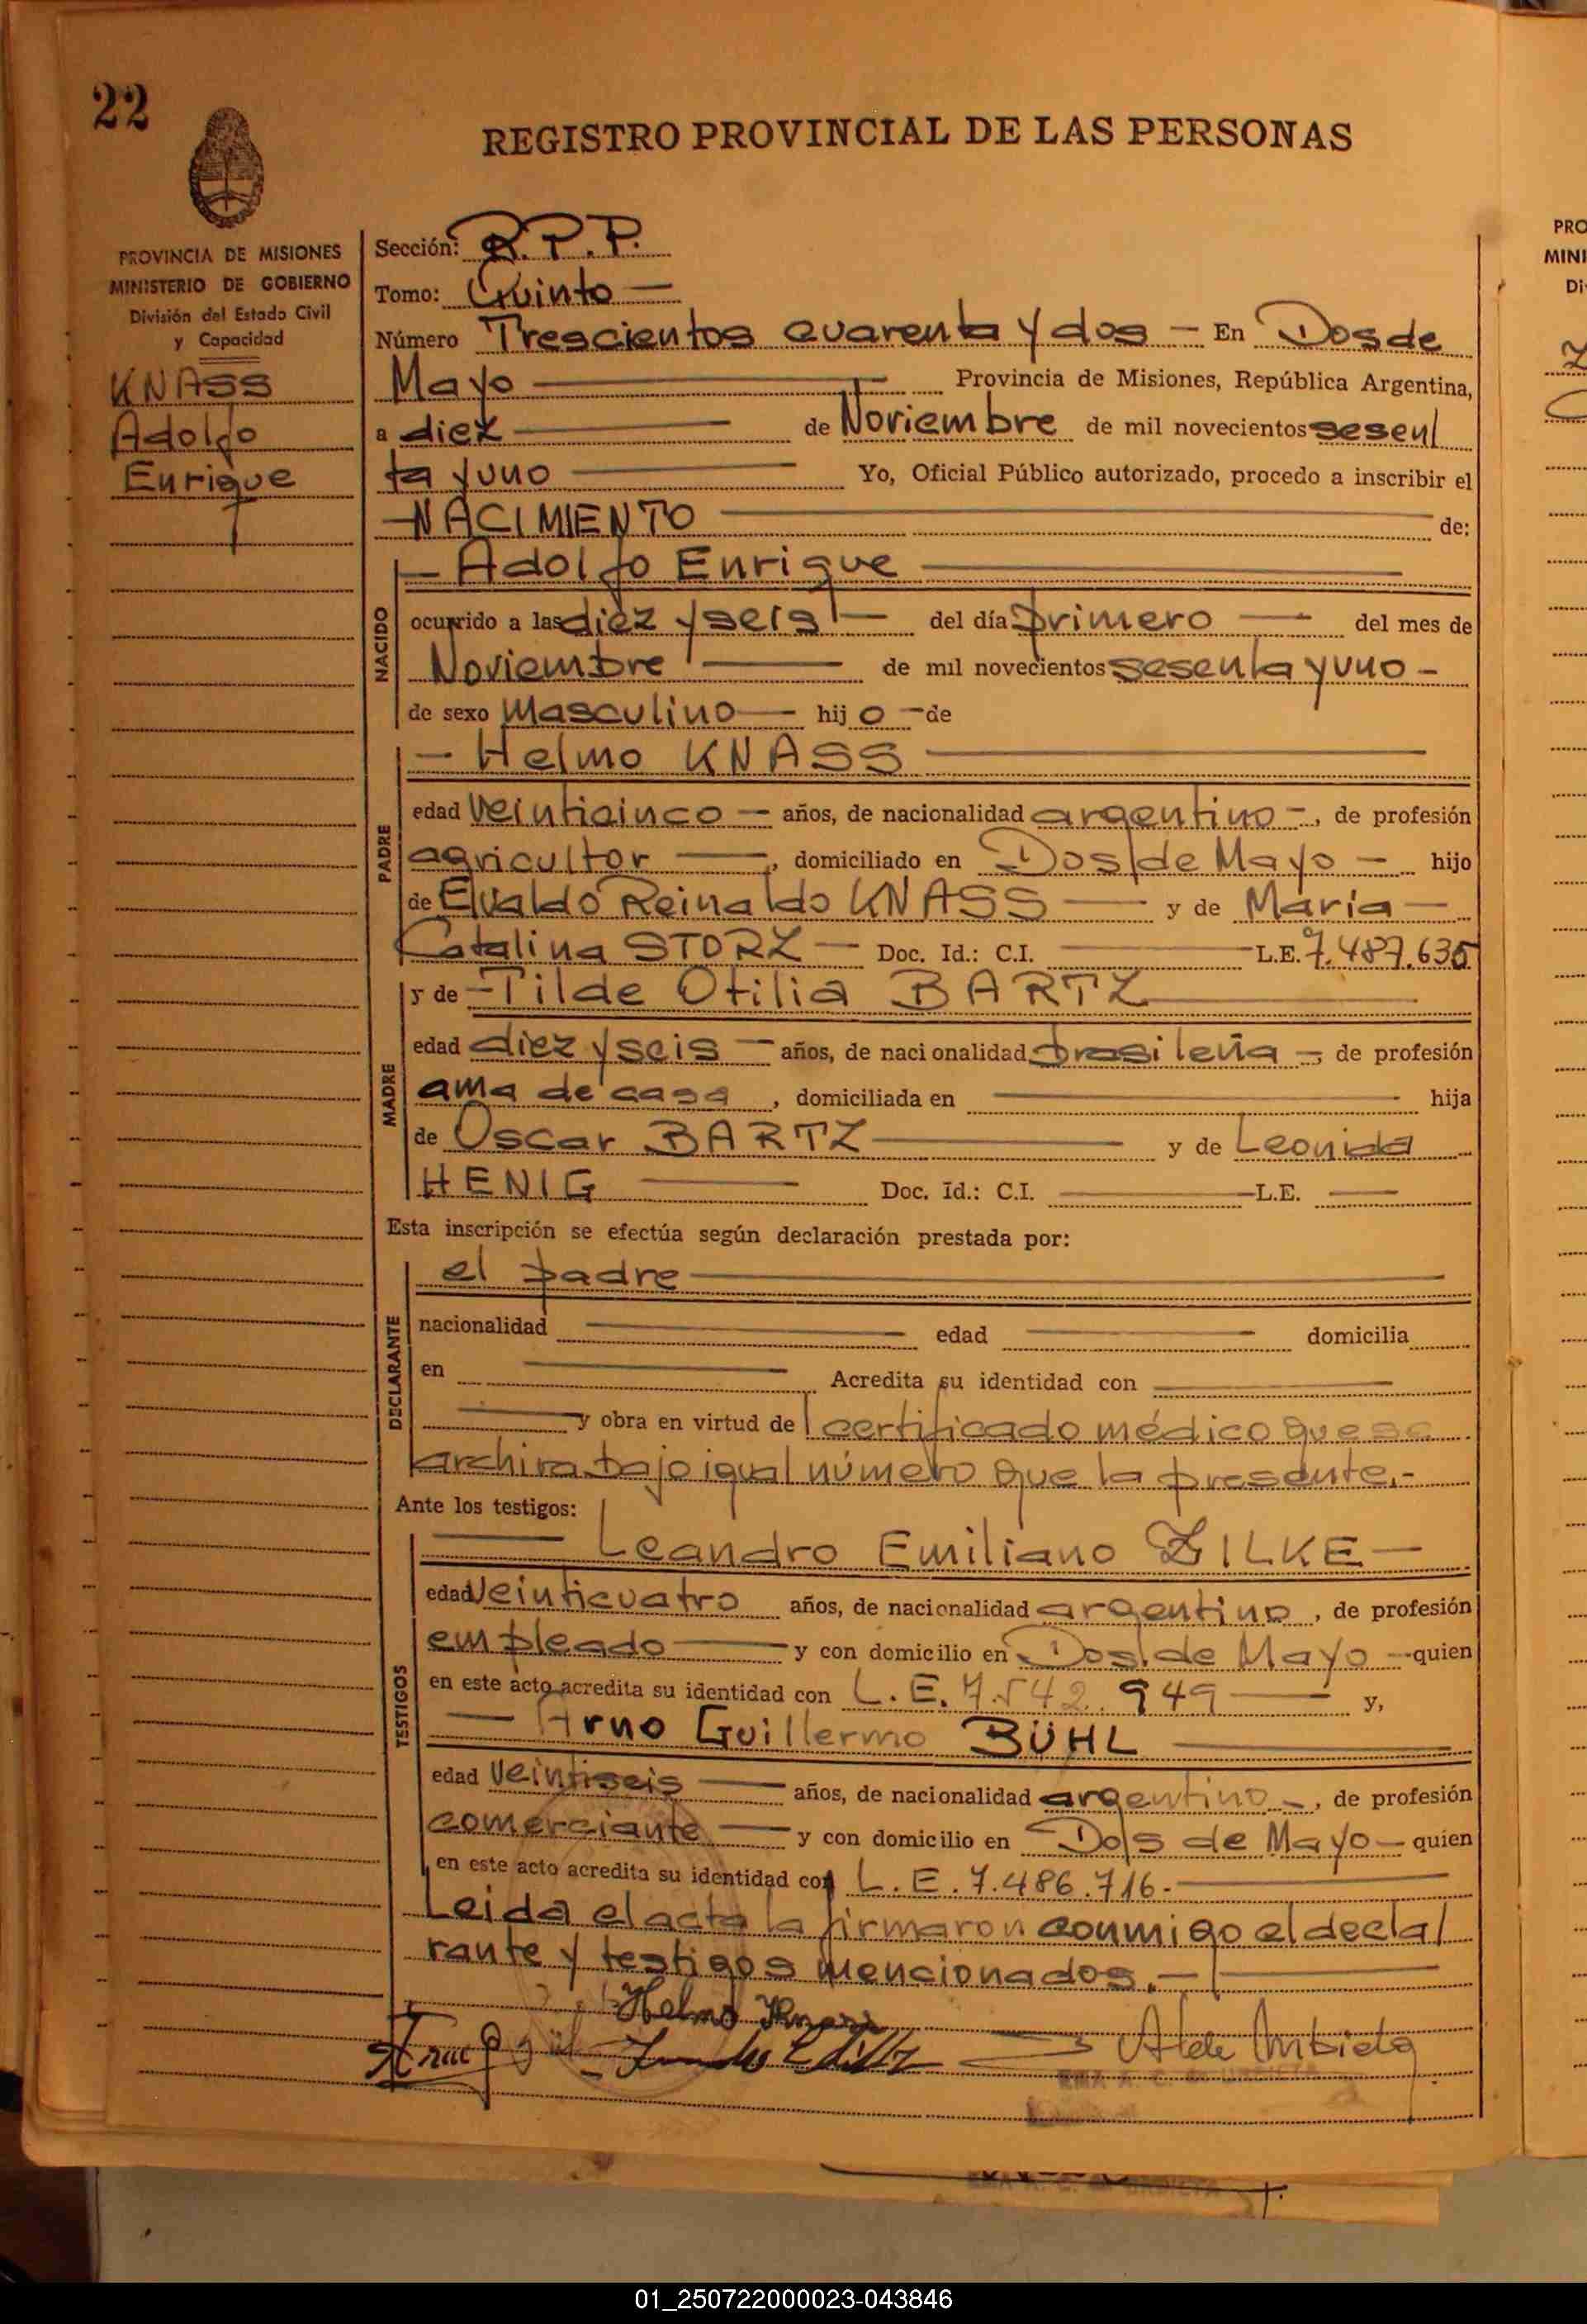 22
REGISTRO PROVINCIAL DE LAS PERSONAS
PROVINCIA DE MISIONES
MINISTERIO DE GOBIERNO
División del Estado Civil
y Capacidad
KNASS
Adolfo
Enrique
Sección: R.P.P.
Tomo: Quinto —
Número Trescientos cuarenta y dos — En Dos de
Mayo — Provincia de Misiones, República Argentina,
a diez — de Noviembre de mil novecientos sesen
ta y uno — Yo, Oficial Público autorizado, procedo a inscribir el
— NACIMIENTO — de:
NACIDO
— Adolfo Enrique —
ocurrido a las diez y seis — del día primero — del mes de
Noviembre — de mil novecientos sesenta y uno —
de sexo Masculino — hij o — de
PADRE
— Helmo KNASS —
edad veinticinco — años, de nacionalidad argentino —, de profesión
agricultor —, domiciliado en Dos de Mayo — hijo
de Elvaldo Reinaldo KNASS — y de María —
Catalina STORZ — Doc. Id.: C.I. — L.E. 7.487.636
MADRE
y de — Tilde Otilia BARTZ —
edad diez y seis — años, de nacionalidad brasileña —, de profesión
ama de casa, domiciliada en — hija
de Oscar BARTZ — y de Leonida
HENIG — Doc. Id.: C.I. — L.E. —
Esta inscripción se efectúa según declaración prestada por:
DECLARANTE
el padre —
nacionalidad — edad — domicilia
en — Acredita su identidad con —
— y obra en virtud de certificado médico que se
archiva bajo igual número que la presente.-
Ante los testigos:
TESTIGOS
— Leandro Emiliano ZILKE —
edad Veinticuatro años, de nacionalidad argentino, de profesión
empleado — y con domicilio en Dos de Mayo — quien
en este acto acredita su identidad con L.E. 7.542.949 — y,
— Arno Guillermo BÜHL —
edad Veintiseis — años, de nacionalidad argentino —, de profesión
comerciante — y con domicilio en Dos de Mayo — quien
en este acto acredita su identidad con L.E. 7.486.716.—
Leida el acta la firmaron conmigo el decla
rante y testigos mencionados.—
Helmo Knass
01_250722000023-043846